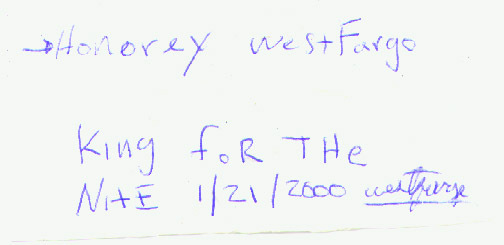 →Honorey WestFargo
King foR THe
NitE 1/21/2000 westfargo